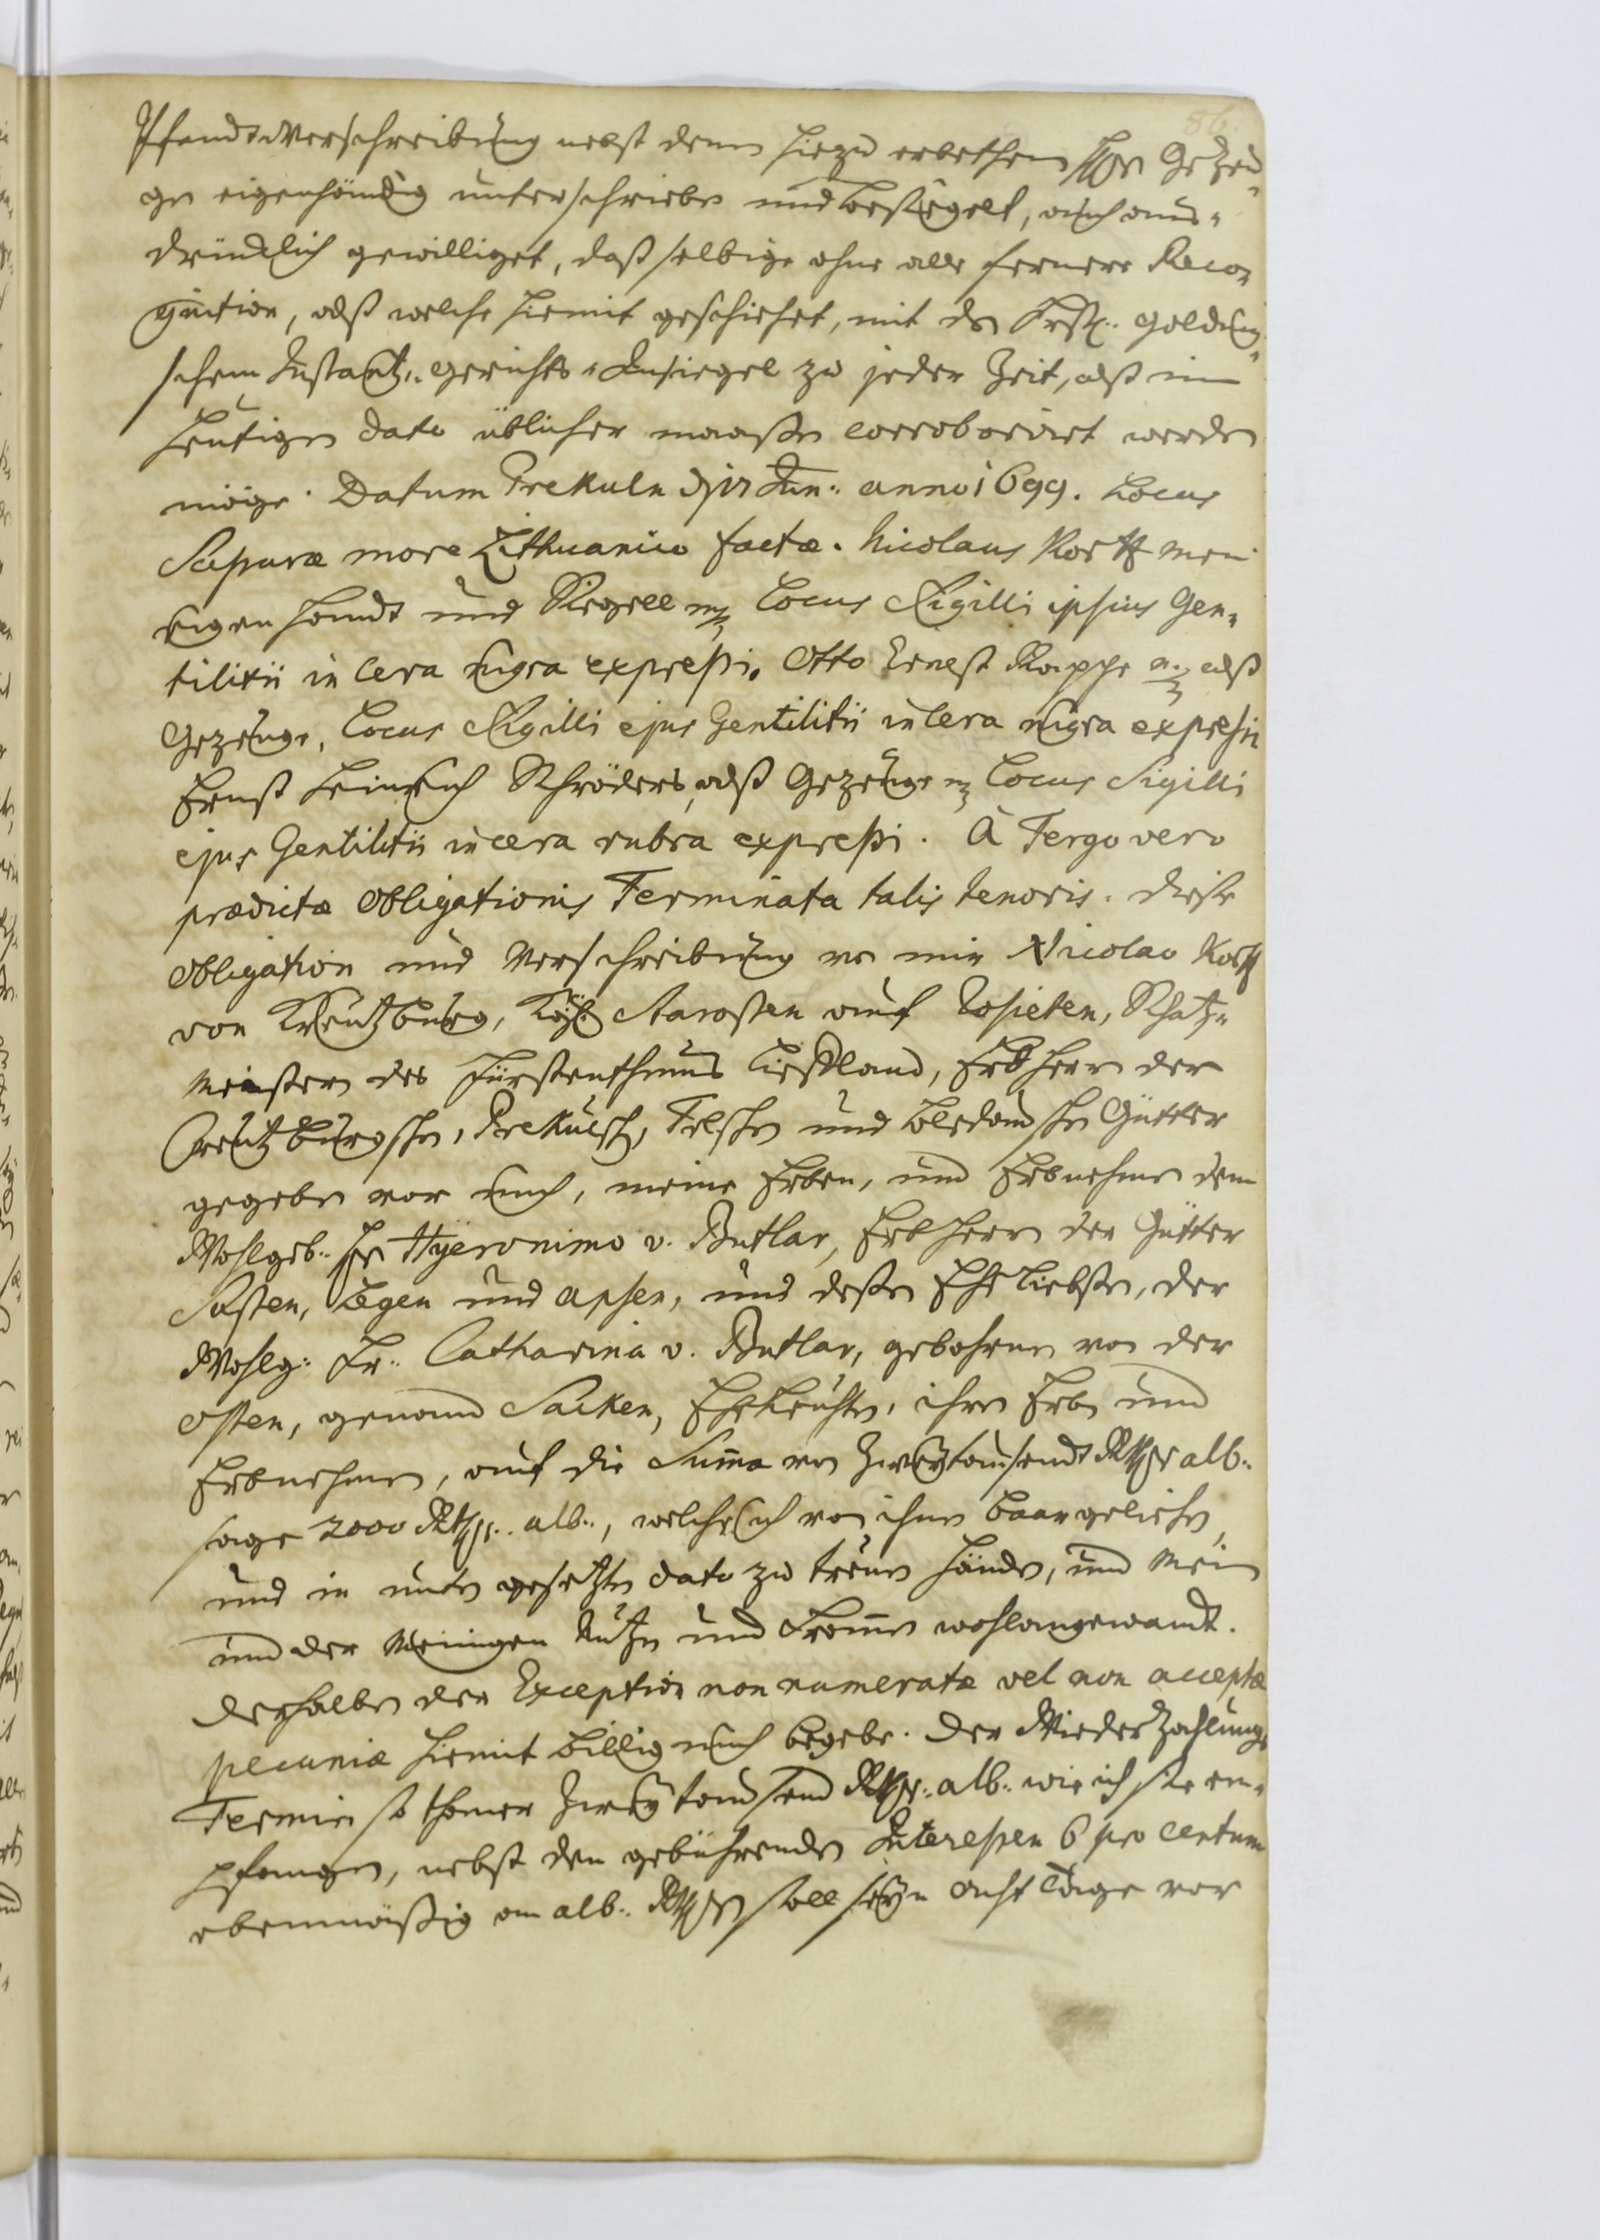 86.
Pfandt Verschreibung nebst denn hiezu erbethen HEn Gezeu
gen eigenhändig unterschrieben und besiegelt, auch aus„
drüncklich gewilliget, daß selbige ohne alle fernere Recog
gnition, alß welche hiemit geschiehet, mit dem Hrstl. Golding
schem Instantz„ Gerichts„ Insiegel zu jeder Zeit, alß im
heutigen dato üblicher maaßen corroboriret werden
möge. Datum Prekuln d 17 Jun: anno 1699. Locus
Scripturæ more Lithuanico factæ. Nicolaus Korff mein
eigen Handt und Siegell Locus Sigilli ipsius Gen„
tilitii in cera nigra expreßi. Otto Ernest Rappe alß
Gezeuge, Locus Sigilli ejus Gentilitii in cera nigra expreßi
Ernst Heinrich Schröders, alß Gezeuge Locus Sigilli
ejus Gentilitii in cera rubra expreßi. A Tergo vero
prædictæ Obligationis Terminata talis tenoris. Diese
Obligation und Verschreibung von mir Nicolao Korff
von Kreutzburg, Königl Starosten auf Rositen, Schatz„
Meistern des Fürstenthums Liefland, Erb Herr der
Creutzburgschen, Prekulsch, Telschen und Gütter
gegeben vor mich, meine Erben, und Erbnehmer dem
Wohlgeb: HEn Hyeronimo v. Butlar, Erb Herr der Gütter
Sasten, Legen und Apsen, und deßen Ehe Liebsten, der
Wohlg: Fr: Catharina v. Butlar, gebohrne von der
Osten, genand Sacken, Eheleuthen, ihren Erben und
Erbnehmern, auf die Suma von Zweytausendt Rthlr alb:
sage 2000 Rthlr. alb:, welche ich von ihnen baar geliehen,
und in unten gesetzten dato zu treuen Händen, und Mein
und der Meinigen Nutzen und Fromen wohlangewandt.
Derhalben der Exception non numeratæ vel non acceptæ
pecuniæ hiemit billig mich begebe. Der Wieder Zahlungs
Termin so thaner Zwey tausend Rthlr: alb: wie ich sie em„
pfangen, nebst den gebührenden Intereßen 6 pro Centum
ebenmäßig an alb: Rthlrn soll seyn acht Tage vor